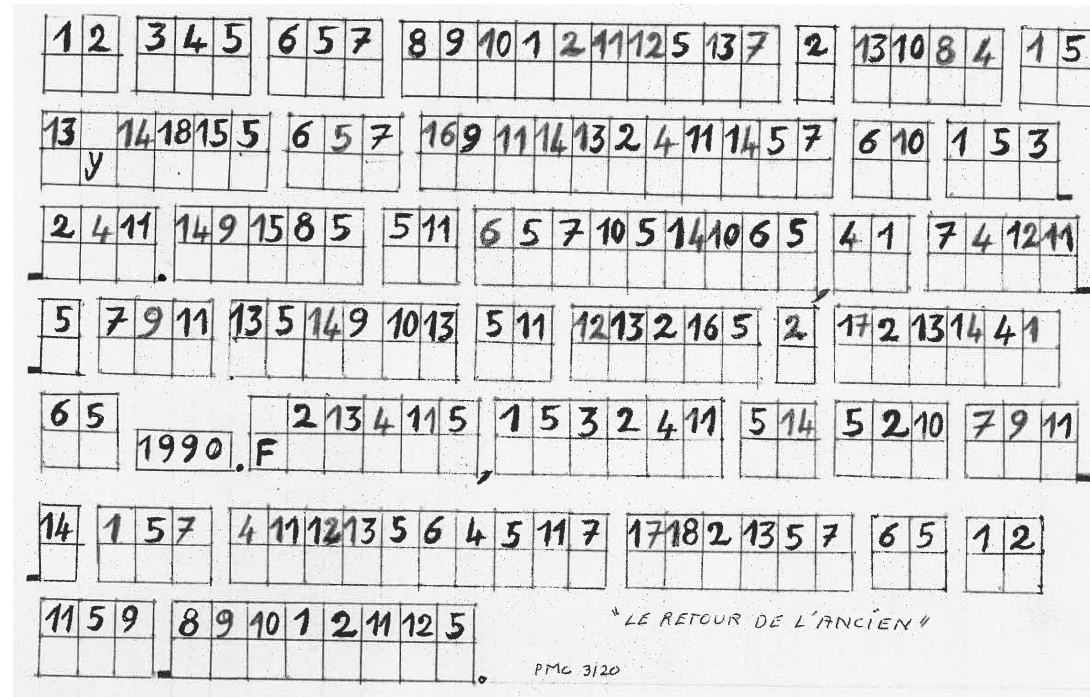 1 2 3 4 5 6 5 7 8 9 10 1 2 11 12 5 13 7 2 13 10 8 4 1 5
13 y 14 18 15 5 6 5 7 16 9 11 14 13 2 4 11 14 5 7 6 10 1 5 3 -
- 2 4 11 . 14 9 15 8 5 5 11 6 5 7 10 5 14 10 6 5 , 4 1 7 4 12 11 -
- 5 7 9 11 13 5 14 9 10 13 5 11 12 13 2 16 5 2 17 2 13 14 4 1
6 5 1990 . F 2 13 4 11 5 , 1 5 3 2 4 11 5 14 5 2 10 7 9 11 -
- 14 1 5 7 4 11 12 13 5 6 4 5 11 7 17 18 2 13 5 7 6 5 1 2
11 5 9 - 8 9 10 1 2 11 12 5 . "LE RETOUR DE L'ANCIEN"
PMG 3/20